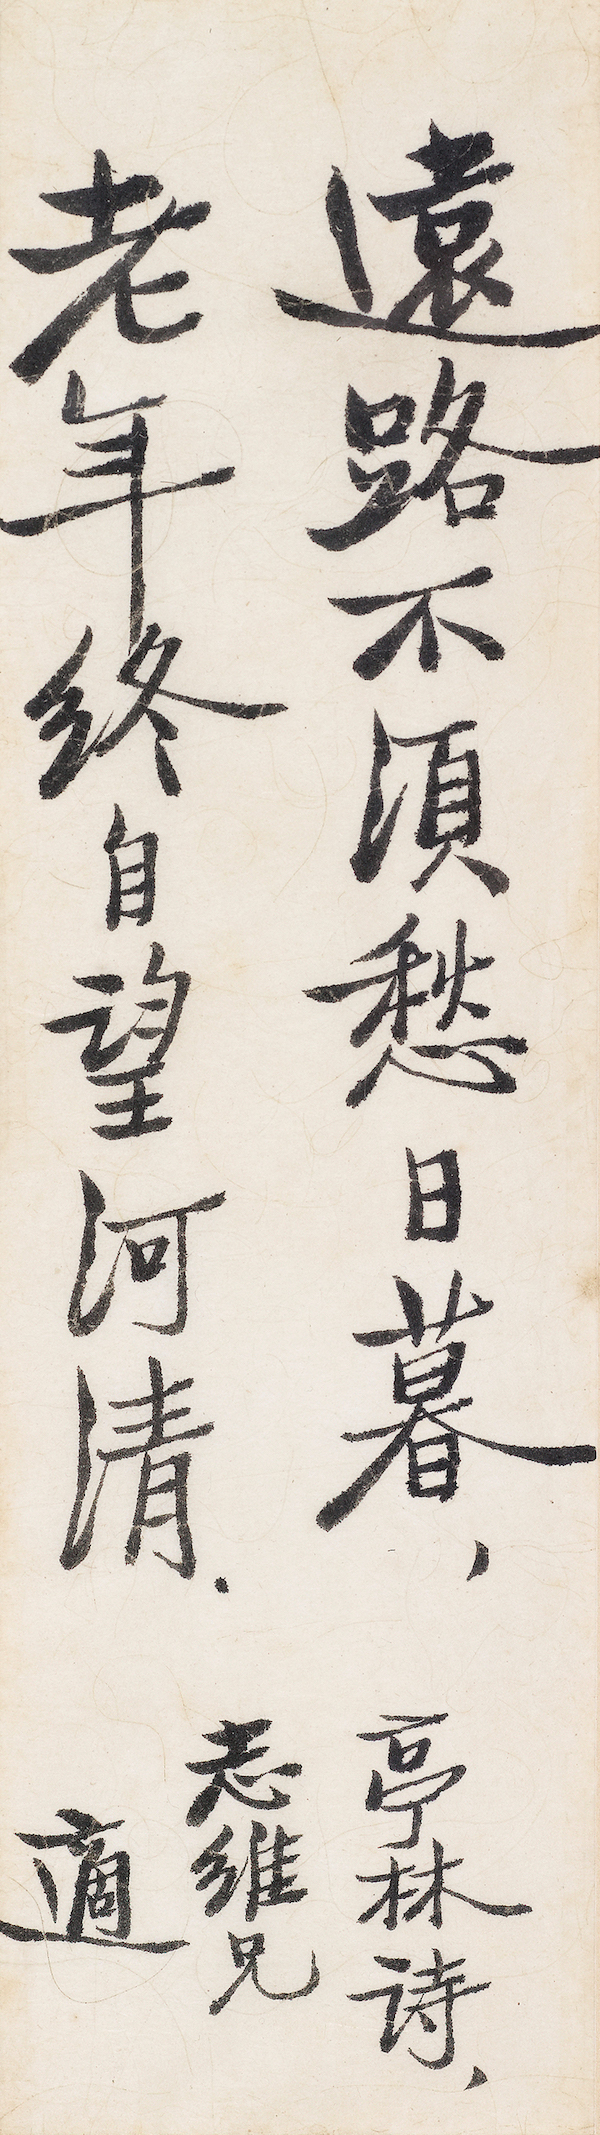 遠路不須愁日暮，
老年終自望河清．
亭林诗，
志維兄
適